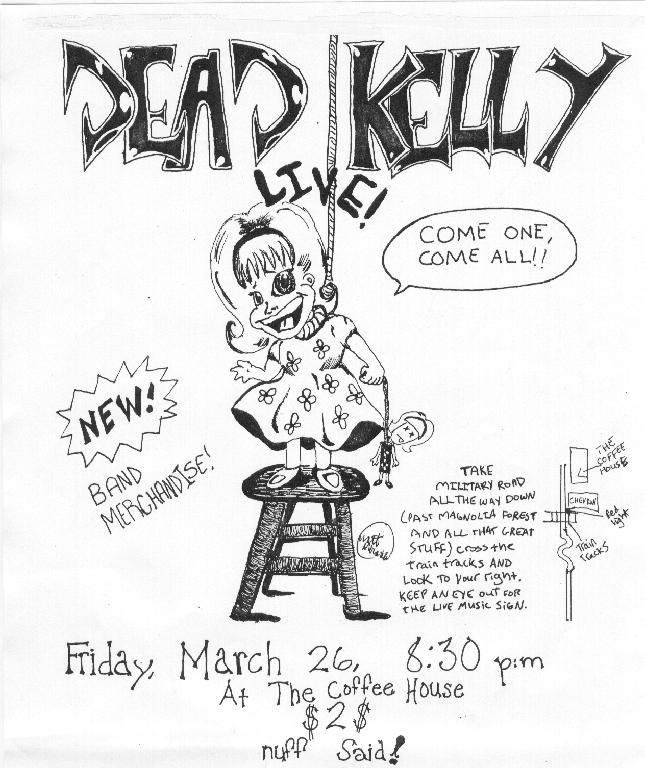 DEAD KELLY
LIVE!
COME ONE,
COME ALL!!
NEW!
BAND
MERCHANDISE!
TAKE
MILITARY ROAD
ALL THE WAY DOWN
(PAST MAGNOLIA FOREST
AND ALL THAT GREAT
STUFF) cross the
train tracks AND
Look to Your right.
KEEP AN EYE OUT FOR
THE LIVE MUSIC SIGN.
THE
COFFEE
HOUSE
CHEVRON
Red
light
Train
Tracks
Friday, March 26, 8:30 p:m
At The Coffee House
$2$
nuff Said!